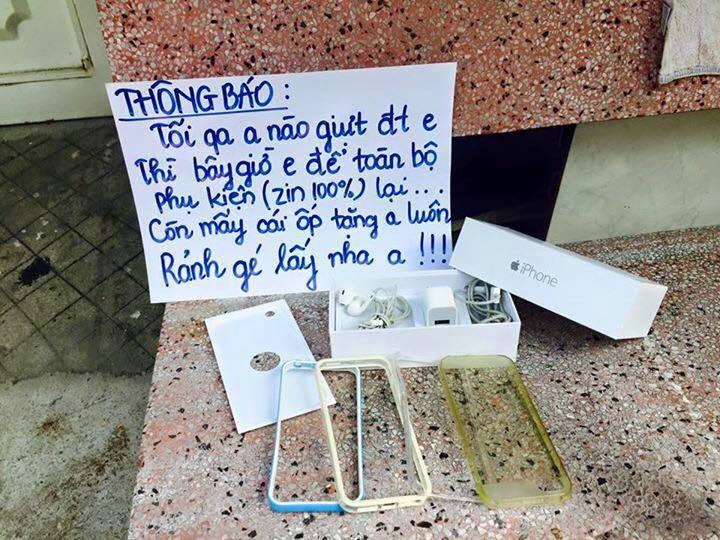 THÔNG BÁO:
Tối qa a nào giựt đt e
Thì bây giờ e để toàn bộ
phụ kiện (zin 100%) lại...
Còn mấy cái ốp tặng a luôn
Rảnh gé lấy nha a !!!
iPhone